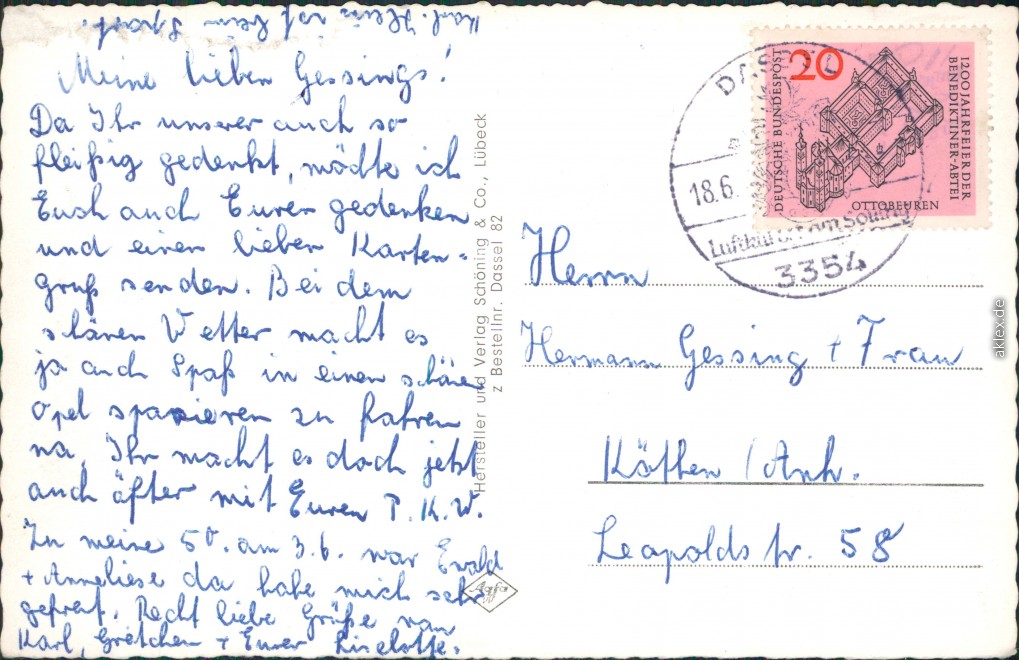 Karl-Heinz ist beim Sport.
Meine lieben Gessings!
Da Ihr unserer auch so
fleißig gedenkt, möchte ich
Euch auch Eurer gedenken
und einen lieben Karten-
gruß senden. Bei dem
schönen Wetter macht es
ja auch Spaß in einen schönen
Opel spazieren zu fahren
na, Ihr macht es doch jetzt
auch öfter mit Euren P.K.W.
Zu meine 50. am 3.6. war Ewald
+ Anneliese da habe mich sehr
gefreut. Recht liebe Grüße von
Karl, Gretchen + Eurer Liselotte.
Hersteller und Verlag Schöning & Co., Lübeck
z Bestellnr. Dassel 82
Agfa
DASSEL
18.6.
Luftkurort am Solling
3354
20
DEUTSCHE BUNDESPOST
1200 JAHRFEIER DER
BENEDIKTINER-ABTEI
OTTOBEUREN
Herrn
Hermann Gessing + Frau
Köthen /Anh.
Leopoldstr. 58
aklex.de